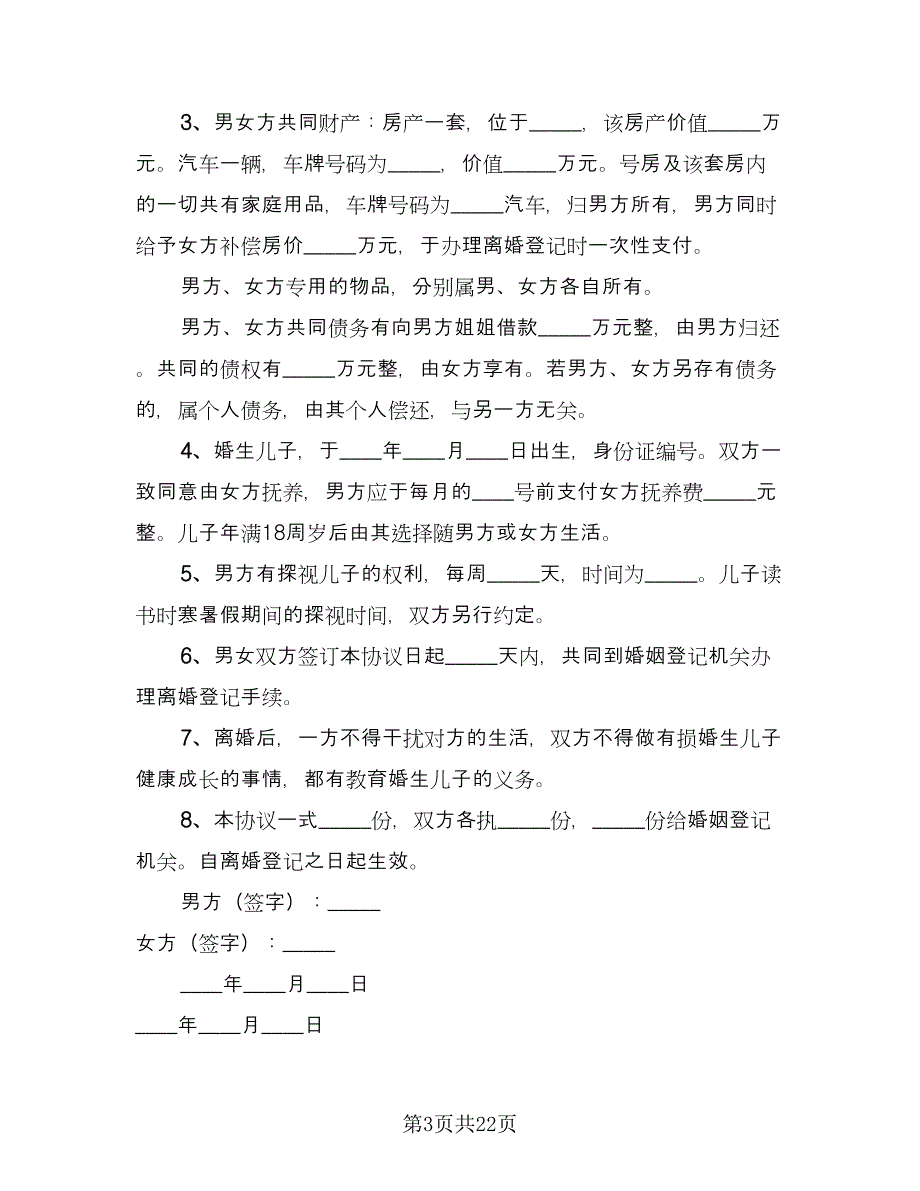 3、男女方共同财产：房产一套，位于_____，该房产价值_____万
元。汽车一辆，车牌号码为_____，价值_____万元。号房及该套房内
的一切共有家庭用品，车牌号码为_____汽车，归男方所有，男方同时
给予女方补偿房价_____万元，于办理离婚登记时一次性支付。
男方、女方专用的物品，分别属男、女方各自所有。
男方、女方共同债务有向男方姐姐借款_____万元整，由男方归还
。共同的债权有_____万元整，由女方享有。若男方、女方另存有债务
的，属个人债务，由其个人偿还，与另一方无关。
4、婚生儿子，于____年____月____日出生，身份证编号。双方一
致同意由女方抚养，男方应于每月的____号前支付女方抚养费_____元
整。儿子年满18周岁后由其选择随男方或女方生活。
5、男方有探视儿子的权利，每周_____天，时间为_____。儿子读
书时寒暑假期间的探视时间，双方另行约定。
6、男女双方签订本协议日起_____天内，共同到婚姻登记机关办
理离婚登记手续。
7、离婚后，一方不得干扰对方的生活，双方不得做有损婚生儿子
健康成长的事情，都有教育婚生儿子的义务。
8、本协议一式_____份，双方各执_____份，_____份给婚姻登记
机关。自离婚登记之日起生效。
男方（签字）：_____
女方（签字）：_____
____年____月____日
____年____月____日
第3页共22页